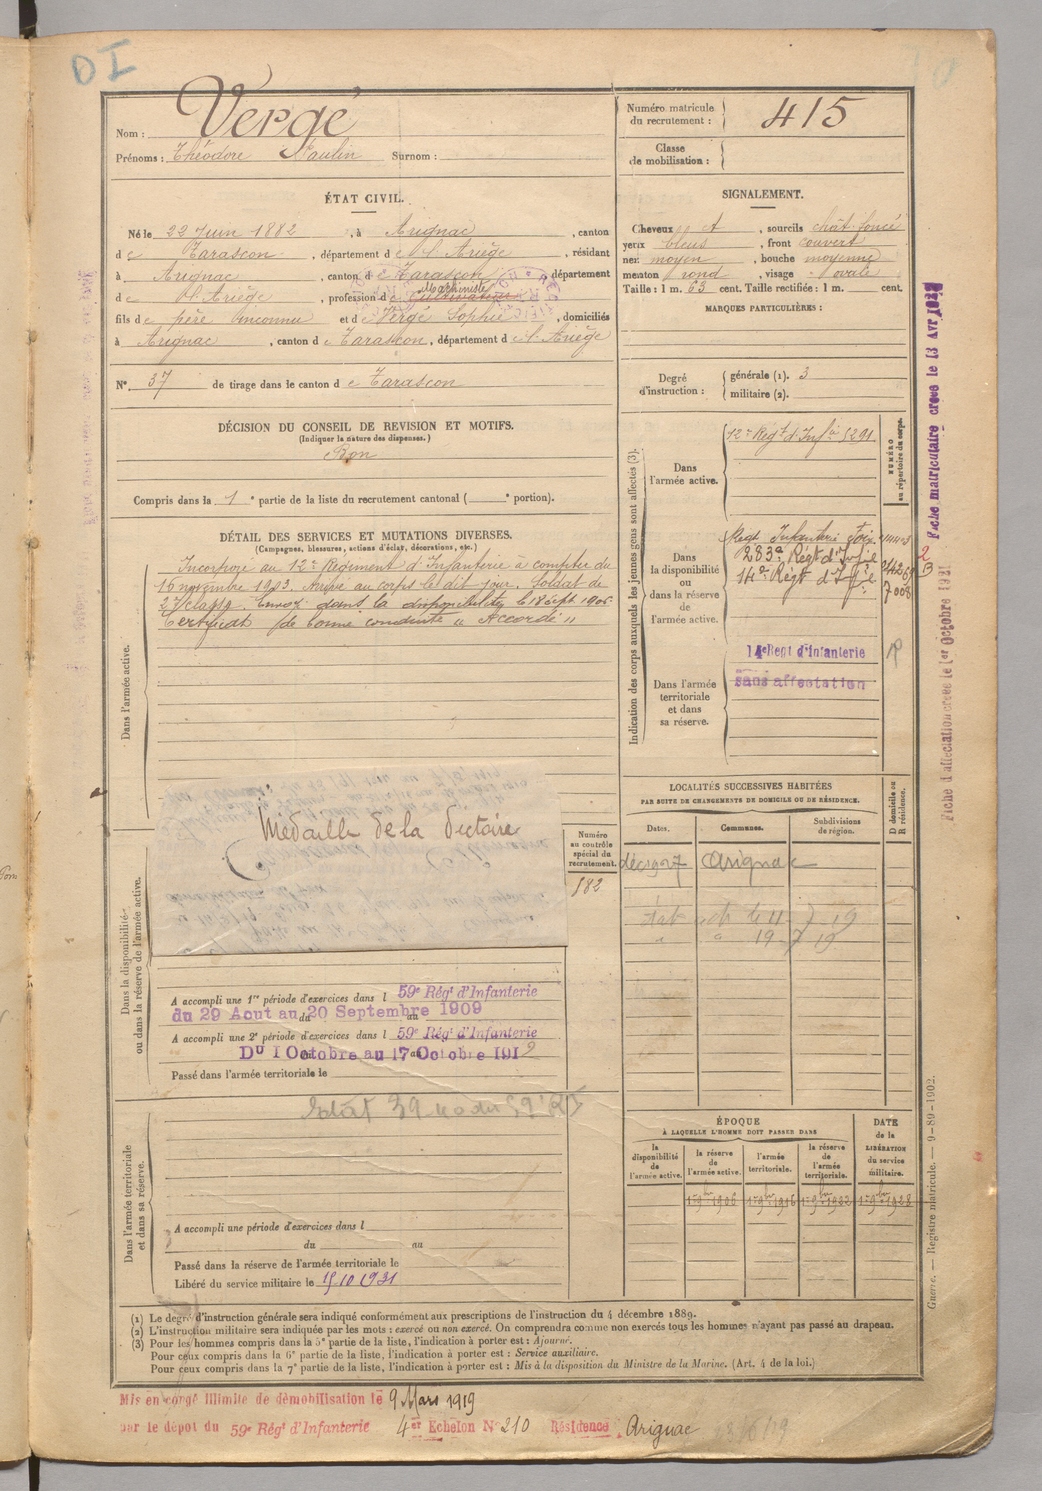 DI
Nom : Vergé
Prénoms : Théodore Paulin Surnom :
Numéro matricule du recrutement : 415
Classe de mobilisation :
ÉTAT CIVIL.
Né le 22 Juin 1882, à Arignac, canton
d e Tarascon, département d e l'Ariège, résidant
à Arignac, canton d e Tarascon, département
d e l'Ariège, profession de Cultivateur Machiniste
fils de père inconnu et de Vergé Sophie, domiciliés
à Arignac, canton d e Tarascon, département d e l'Ariège
N° 37 de tirage dans le canton d e Tarascon
DÉCISION DU CONSEIL DE REVISION ET MOTIFS.
(Indiquer la nature des dispenses.)
Bon
Compris dans la 1e partie de la liste du recrutement cantonal ( e portion).
SIGNALEMENT.
Cheveux et, sourcils chât foncé
yeux bleus, front couvert
nez moyen, bouche moyenne
menton rond, visage ovale
Taille : 1 m. 63 cent. Taille rectifiée : 1 m. cent.
MARQUES PARTICULIÈRES :
Degré d'instruction : générale (1). 3
militaire (2).
DÉTAIL DES SERVICES ET MUTATIONS DIVERSES.
(Campagnes, blessures, actions d'éclat, décorations, etc.)
Dans l'armée active.
Incorporé au 12e Régiment d'Infanterie à compter du
16 novembre 1903. Arrivé au corps le dit jour. Soldat de
2e classe. Envoyé dans la disponibilité le 18 sept 1906.
Certificat de bonne conduite "Accordé"
Indication des corps auxquels les jeunes gens sont affectés (3).
NUMÉRO au répertoire du corps.
Dans l'armée active.
12e Régt d'Infie 5291
Dans la disponibilité ou dans la réserve de l'armée active.
Régt Infanterie Foix
283e Régt d'Infie
14e Régt d'Infie 7008
14e Regt d'Infanterie
Dans l'armée territoriale et dans sa réserve.
sans affectation
Médaille de la Victoire
Numéro au contrôle spécial du recrutement.
182
Dans la disponibilité ou dans la réserve de l'armée active.
A accompli une 1re période d'exercices dans l 59e Régt d'Infanterie
du 29 Aout au 20 Septembre 1909
A accompli une 2e période d'exercices dans l 59e Régt d'Infanterie
Du 1 Octobre au 17 Octobre 1912
Passé dans l'armée territoriale le
Dans l'armée territoriale et dans sa réserve.
A accompli une période d'exercices dans l
du au
Passé dans la réserve de l'armée territoriale le
Libéré du service militaire le 15 10 1931
LOCALITÉS SUCCESSIVES HABITÉES
PAR SUITE DE CHANGEMENTS DE DOMICILE OU DE RÉSIDENCE.
D domicile ou R résidence.
Dates. Communes. Subdivisions de région.
Arignac
ÉPOQUE
À LAQUELLE L'HOMME DOIT PASSER DANS
DATE de la LIBÉRATION du service militaire.
la disponibilité de l'armée active.
la réserve de l'armée active.
l'armée territoriale.
la réserve de l'armée territoriale.
1er 9bre 1906 1er 9bre 1916 1er 9bre 1922 1er 9bre 1928
(1) Le degré d'instruction générale sera indiqué conformément aux prescriptions de l'instruction du 4 décembre 1889.
(2) L'instruction militaire sera indiquée par les mots : exercé ou non exercé. On comprendra comme non exercés tous les hommes n'ayant pas passé au drapeau.
(3) Pour les hommes compris dans la 5e partie de la liste, l'indication à porter est : Ajourné.
Pour ceux compris dans la 6e partie de la liste, l'indication à porter est : Service auxiliaire.
Pour ceux compris dans la 7e partie de la liste, l'indication à porter est : Mis à la disposition du Ministre de la Marine. (Art. 4 de la loi.)
Mis en congé illimité de démobilisation le 9 Mars 1919
par le dépot du 59e Régt d'Infanterie 4er Echelon N° 210 Résidence Arignac
Fiche d'affectation créée le 1er Octobre 1931
Guerre. — Registre matricule. — 9-89-1902.